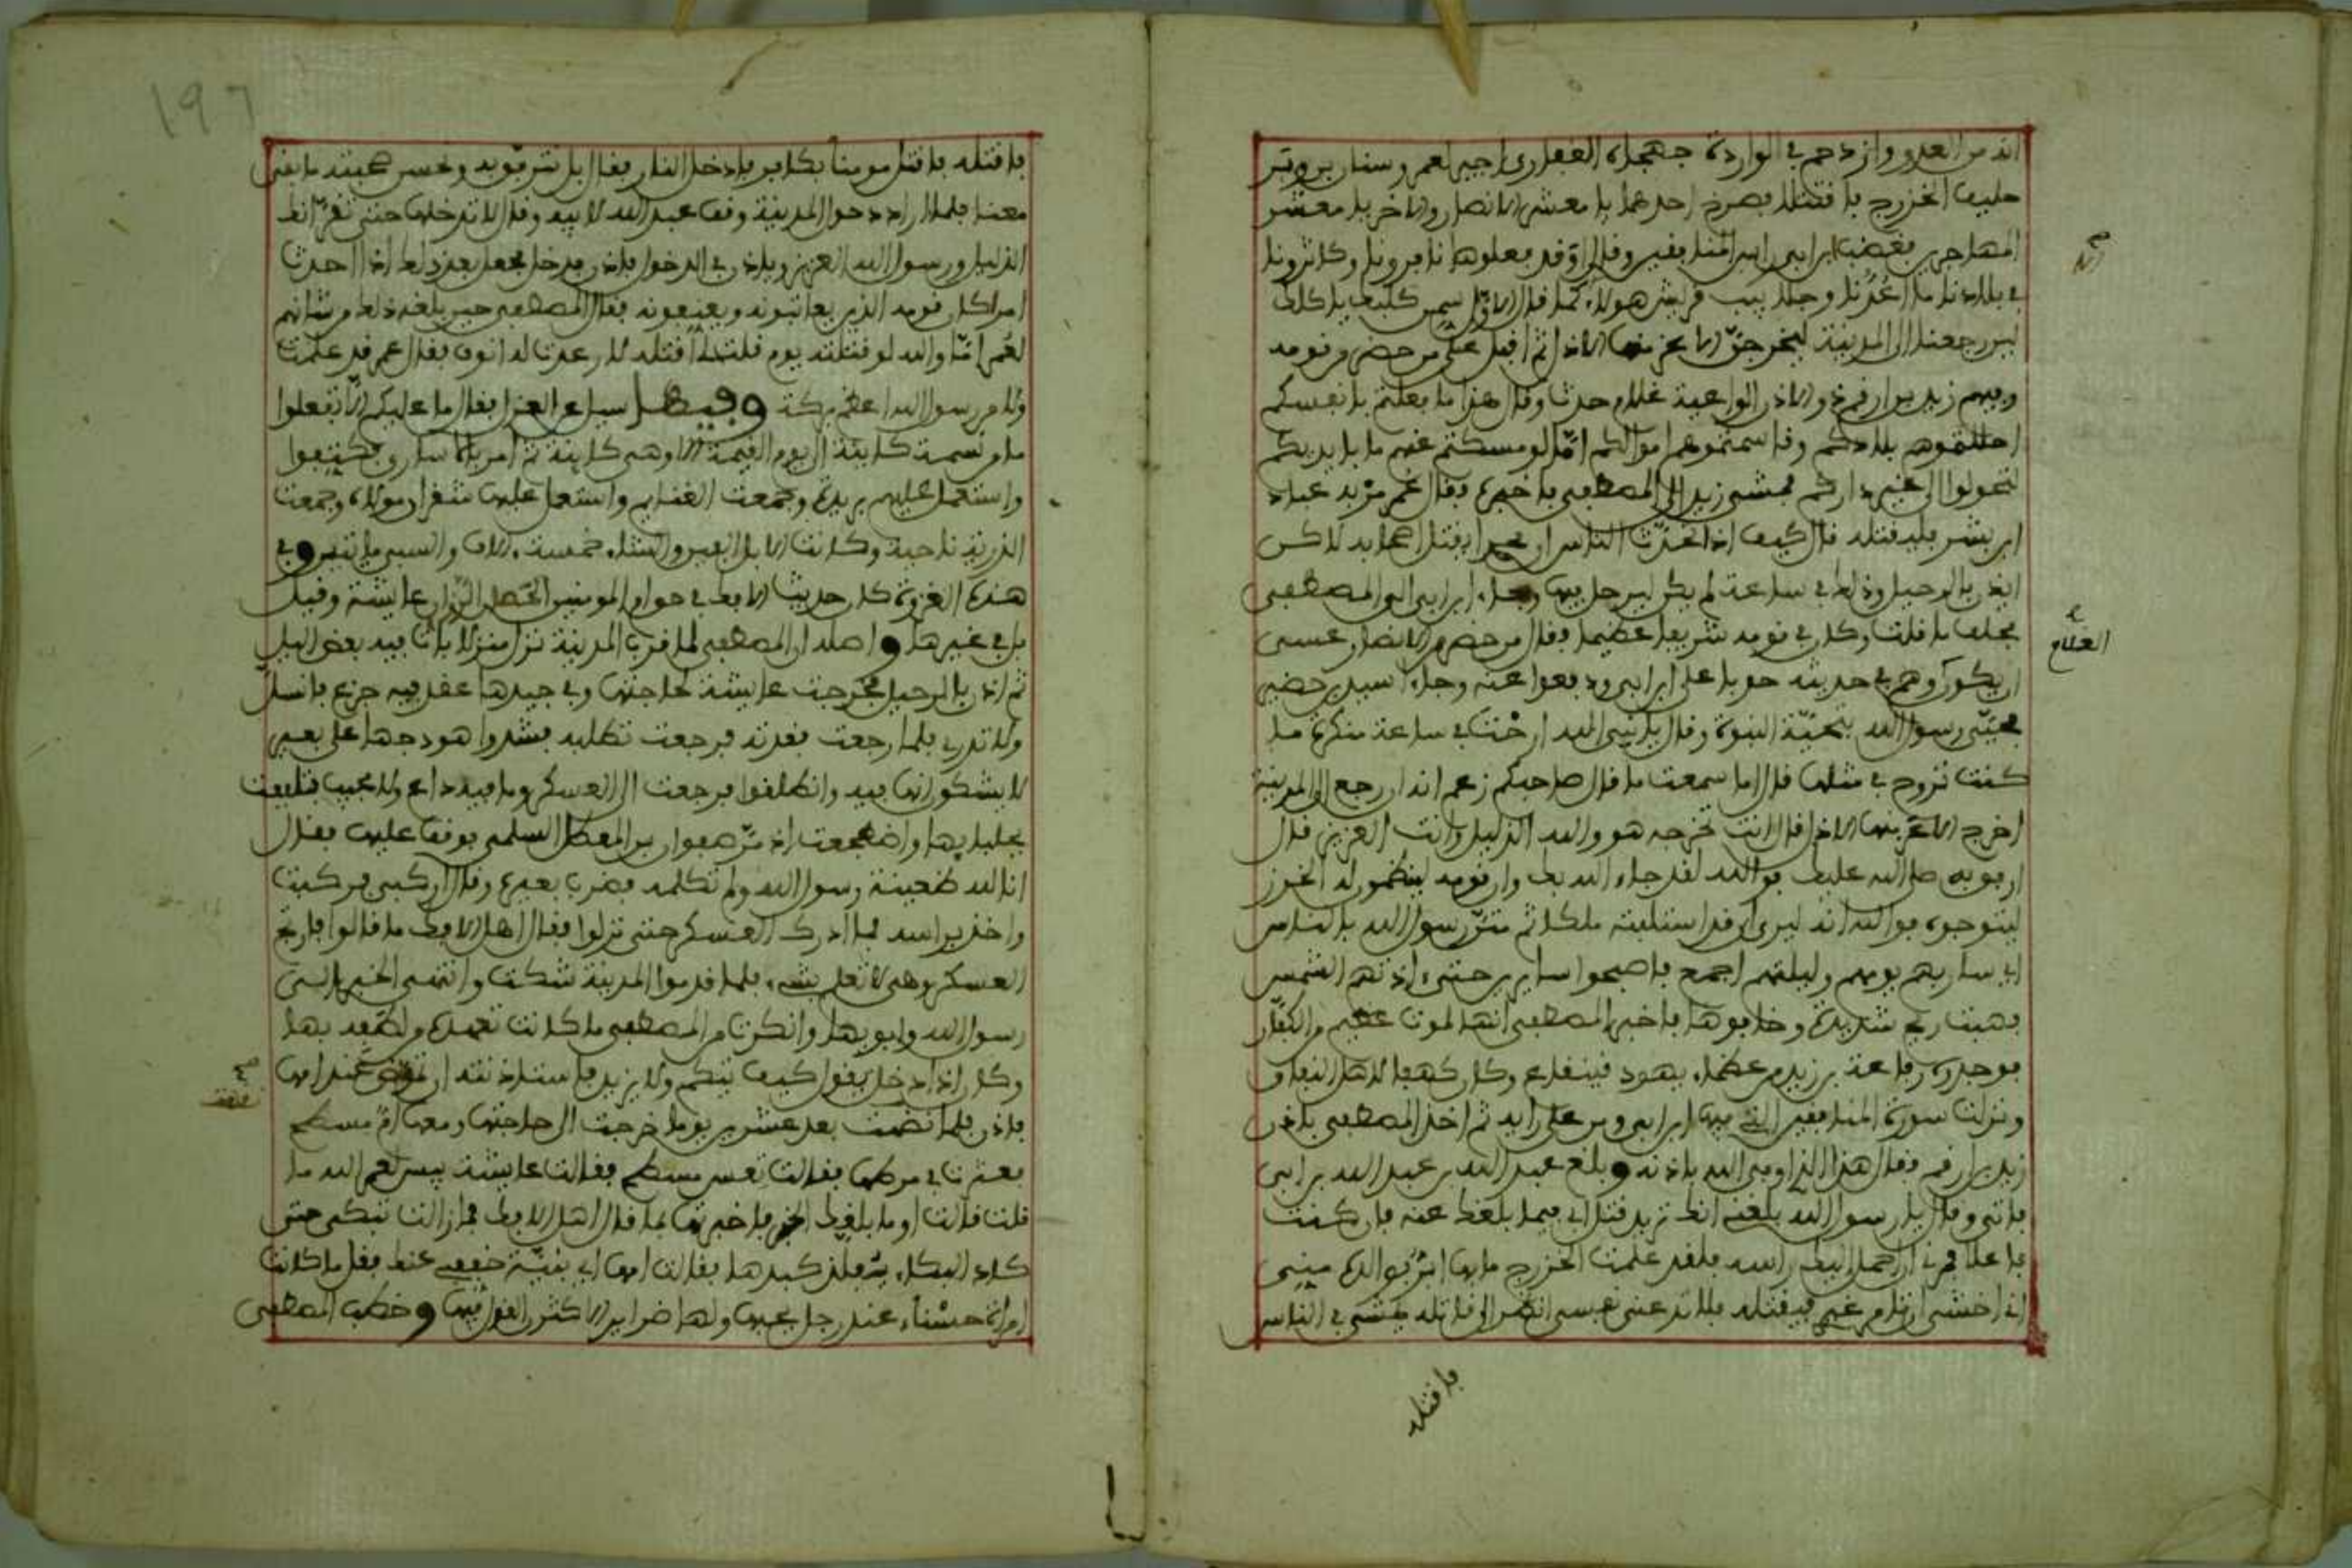 انه من العدو وازدحم في الواردة جهجاه الغفاري اجير لعمر وسنان بن وبر
حليف الخزرج فاقتتلا فصرخ احدهما يا معشر الانصار والاخر يا معشر
المهاجرين فغضب ابن ابي راس المنافقين وقال اوَقد فعلوها نافرونا وكاثرونا
في بلادنا ما اعُدُنا وجلابيب قريش هولاء كما قال الاول سمن كلبك ياكلك
لين رجعنا الى المدينة ليخرجنّ الاعز منها الاذل ثم اقبل على من حضر من قومه
وفيهم زيد بن ارقم ذو الاذن الواعية غلام حدث وقال هذا ما فعلتم بانفسكم
احللتموهم بلادكم وقاسمتموهم اموالكم امَا لو مسكتم عنهم ما بايديكم
لتحولوا الى غير داركم فمشى زيد الى المصطفى فاخبره فقال عمر مُر به عباد
ابن بشر فليقتله قال كيف اذا تحدّث الناس ان محمدا يقتل اصحابه لاكن
ايذن بالرحيل وذلك في ساعة لم يكن ليرحل فيها وجاء ابن ابي الى المصطفى
يحلف ما قلت وكان في قومه شريفا عضيما فقال من حضر من الانصار عسى
ان يكون وهم في حديثه حدبا على ابن ابي ودفعوا عنه وجاء اسيد بن حضير
فحيّى رسول الله بتحيّة النبوة وقال يا نبي الله ارحْت في ساعة منكرة ما
كنت تروح في مثلها قال اما سمعت ما قال صاحبكم زعم انه ان رجع الى المدينة
اخرج الاعز منها الاذل قال انت تخرجه هو والله الذليل وانت العزيز قال
ارفو به صلى الله عليك فو الله لقد جاء الله بك وان قومه لينظمون له الخرز
ليتوجوه فو الله انه ليرى ان قد استلبته ملكا ثم متن رسول الله بالناس
اي سار بهم يومهم وليلتهم اجمع فاصبحوا سايرين حتى اذتهم الشمس
فهبت ريح شديدة وخافوها فاخبر المصطفى انها لموت عظيم من الكفّار
فوجدوه رفاعة بن زيد من عظماء يهود قينقاع وكان كهفا لاهل النفاق
ونزلت سورة المنافقين التي فيها ابن ابي ومن على رايه ثم اخذ المصطفى باذن
زيد بن ارقم فقال هذا الذي اوفى الله باذنه وبلغ عبد الله بن عبد الله بن ابي
فاتى وقال يا رسول الله بلغني انك تريد قتل ابي فيما بلغك عنه فان كنت
فاعلا فمرني ان احمل اليك راسه فلقد علمت الخزرج ما بها ابَرّ بوالده مني
اني اخشى ان تامر غيري فيقتله فلا تدعني نفسي انظر الى قاتله يمشي في الناس
فاقتله
صح
العظام
فاقتله فاقتل مومنا بكافر فادخل النار فقال بل نترفّق به ونحسن صحبته ما بقي
معنا فلما اراد دخول المدينة وقف عبد الله لابيه وقال لا تدخلها حتى تقرّ انك
الذليل ورسول الله العزيز وياذن في الدخول فاذن فدخل فجعل بعد ذلك اذا احدث
امرا كان قومه الذين يعاتبونه ويعنفونه فقال المصطفى حين بلغه ذلك من شانهم
لعُمر امَا والله لو قتلته يوم قلت لي اقتله لارعدت له انوف فقال عمر قد علمت
ولامر رسول الله اعظم بركة وفيها سياع العزل فقال ما عليكم الّا تفعلوا
ما من نسمة كاينة الى يوم القيمة الا وهي كاينة ثم امر بالاسارى فكتفوا
واستعمل عليهم بريدة وجمعت الغنايم واستعمل عليها شقران مولاه وجمعت
الذرية ناحية وكانت الابل الفين والشاء خمسة الاف والسبي مايتين وفي
هذه الغزوة كان حديث الافك في حق ام المومنين الحصان الرزان عايشة وقيل
بل في غيرها واصله ان المصطفى لما قرب المدينة نزل منزلا بات فيه بعض الليل
ثم اذن بالرحيل فخرجت عايشة لحاجتها وفي جيدها عقد فيه جزع فانسلّ
ولا تدري فلما رجعت فقدته فرجعت تطلبه فشدوا هودجها على بعير
لا يشكون انها فيه وانطلقوا فرجعت الى العسكر وما فيه داع ولا مجيب فتلفعت
بجلبابها واضطجعت اذ مرّ صفوان بن المعطل السلمي فوقف عليها فقال
انا لله ظعينة رسول الله ولم تكلمه فقرب بعيره وقال اركبي فركبت
واخذ براسه فما ادرك العسكر حتى نزلوا فقال اهل الافك ما قالوا فارتج
العسكر وهي لا تعلم بشيء فلما قدموا المدينة شكت وانتهى الخبر الى
رسول الله وابويها وانكرت من المصطفى ما كانت تعهده من لطفه بها
وكان اذا دخل يقول كيف تيكم ولا يزيد فاستاذنته ان تمرض عند امها
فاذن فلما نقهت بعد عشرين يوما خرجت الى حاجتها ومعها امّ مسطح
فعثرت في مرطها فقالت تعس مسطح فقالت عايشة بيس لعمر الله ما
قلت قالت اوما بلغك الخبر فاخبرتها بما قال اهل الافك فما زالت تبكي حتى
كاد البكاء يفلق كبدها فقالت امها اي بنيّة خففي عنك فقل ما كانت
امراة حسْناء عند رجل يحبها ولها ضراير الا كثرن القول فيها وخطب المصطفى
صح
نقهت